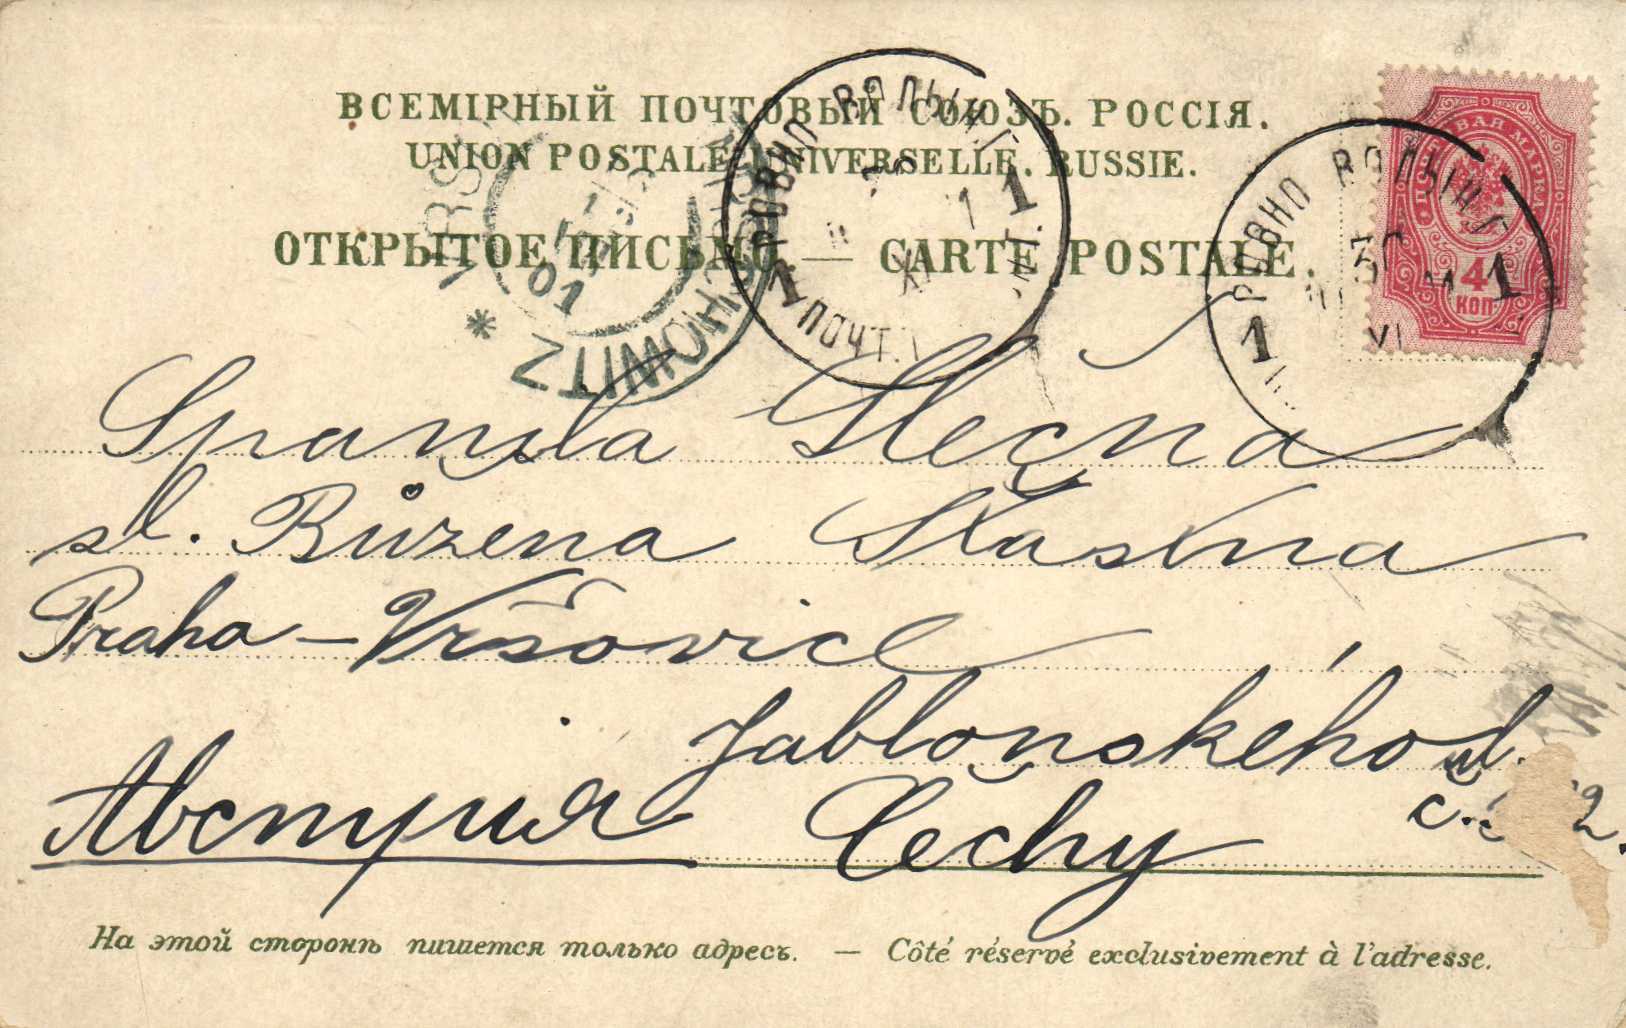 ВСЕМІРНЫЙ ПОЧТОВЫЙ СОЮЗЪ. РОССІЯ.
UNION POSTALE UNIVERSELLE. RUSSIE.
ОТКРЫТОЕ ПИСЬМО — CARTE POSTALE.
РОВНО ВОЛЫН. Г.
1 ПОЧТ. 1
XI
01
РОВНО ВОЛЫН. Г.
1 1
30
XI
ПОЧТОВАЯ МАРКА
4
КОП.
Spanila Slečna
sl. Růzena Štastna
Praha – Vršovice
Jablonského ul.
Австрия Čechy č.
На этой сторонѣ пишется только адресъ. — Côté réservé exclusivement à l'adresse.